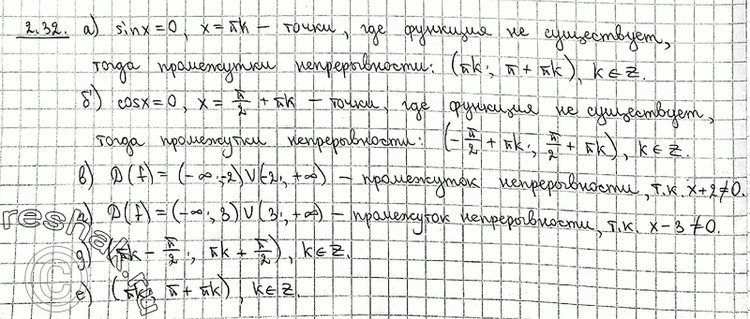 2.32. а) sinx=0, x=πk – точки, где функция не существует,
тогда промежутки непрерывности: (πk; π+πk), k∈Z.
б) cosx=0, x=π/2+πk – точки, где функция не существует,
тогда промежутки непрерывности: (-π/2+πk; π/2+πk), k∈Z.
в) D(f)=(-∞;-2)∪(-2;+∞) – промежуток непрерывности, т.к. x+2≠0.
г) D(f)=(-∞;3)∪(3;+∞) – промежуток непрерывности, т.к. x-3≠0.
д) (πk-π/2; πk+π/2), k∈Z.
е) (πk; π+πk), k∈Z.
©reshak.ru